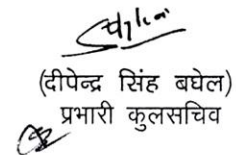 (दीपेन्द्र सिंह बघेल)
प्रभारी कुलसचिव